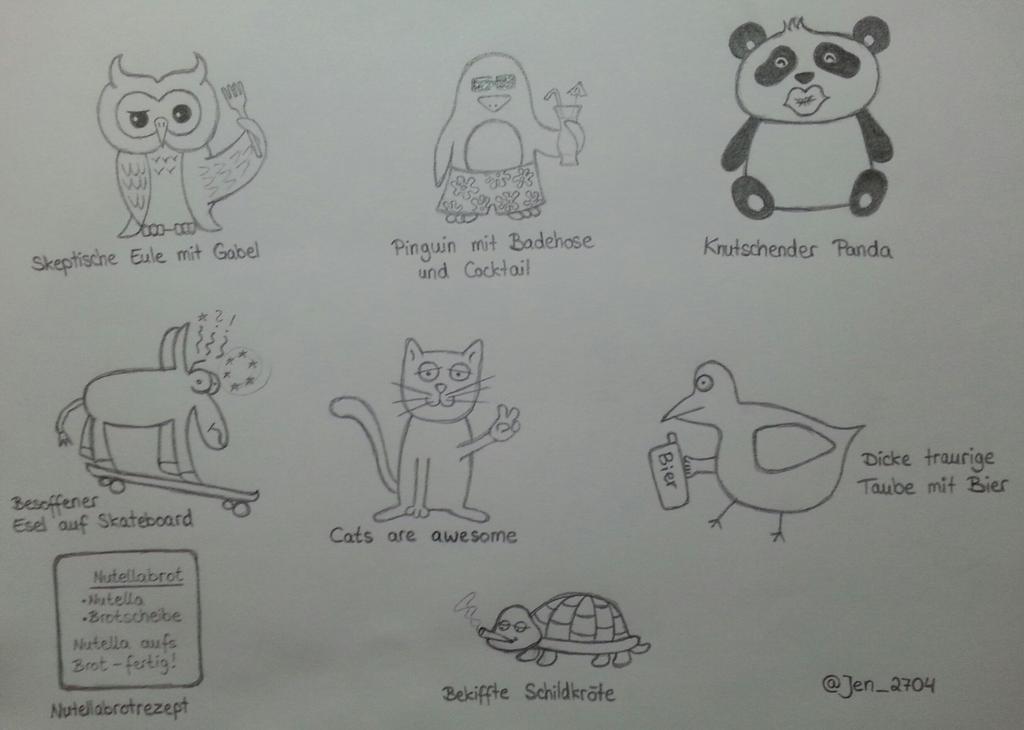 Skeptische Eule mit Gabel
Pinguin mit Badehose
und Cocktail
Knutschender Panda
*?!
Besoffener
Esel auf Skateboard
Cats are awesome
Bier
Dicke traurige
Taube mit Bier
Nutellabrot
•Nutella
•Brotscheibe
Nutella aufs
Brot – fertig!
Nutellabrotrezept
Bekiffte Schildkröte
@Jen_2704